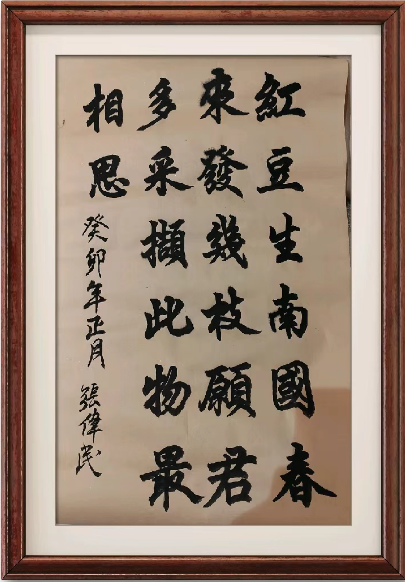 紅豆生南國春
來發幾枝願君
多采擷此物最
相思
癸卯年正月 張偉民